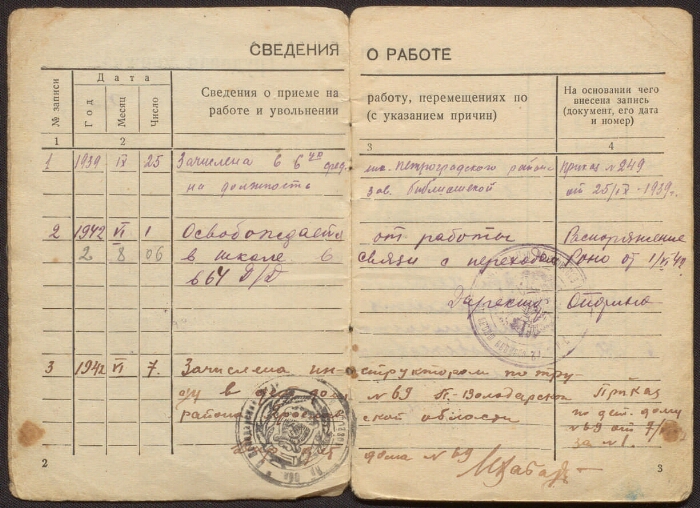 СВЕДЕНИЯ О РАБОТЕ
№ записи
Дата
Год
Месяц
Число
Сведения о приеме на работу, перемещениях по
работе и увольнении (с указанием причин)
На основании чего
внесена запись
(документ, его дата
и номер)
1 2 3 4
1 1939 IX 25 Зачислена в 6ую сред. шк. Петроградского района Приказ № 249
на должность зав. библиотекой от 25/IX-1939г.
2 1942 VI 1 Освобождается от работы Распоряжение
2 8 06 в школе в связи с переходом Роно от 1/VI 42
в 64 Д/Д
Директор
3 1942 VI 7. Зачислена инструктором по тру-
ду в дет. дом № 69 П.-Володарск Приказ
района ской области по дет. дому
№ 69 от 7/VI
за № 1.
дома № 69
2
3